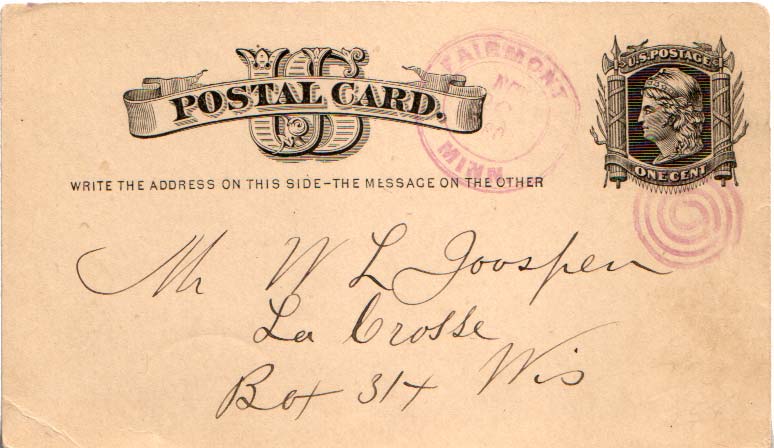 U.S. POSTAGE
POSTAL CARD.
US
ONE CENT
FAIRMONT
MINN
WRITE THE ADDRESS ON THIS SIDE-THE MESSAGE ON THE OTHER
Mr W L
La Crosse
Box 314 Wis